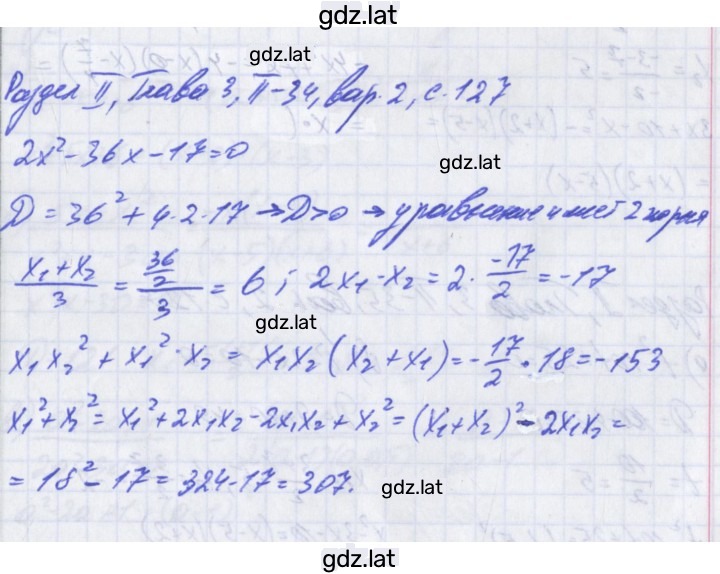 gdz.lat
gdz.lat
Раздел II, Глава 3, П-34, вар. 2, с. 127
2x² - 36x - 17 = 0
gdz.lat
D = 36² + 4 · 2 · 17 → D > 0 → уравнение имеет 2 корня
(x₁ + x₂)/3 = (36/2)/3 = 6; 2x₁ · x₂ = 2 · (-17/2) = -17
gdz.lat
x₁x₂² + x₁² · x₂ = x₁x₂(x₂ + x₁) = -17/2 · 18 = -153
x₁² + x₂² = x₁² + 2x₁x₂ - 2x₁x₂ + x₂² = (x₁ + x₂)² - 2x₁x₂ =
= 18² - 17 = 324 - 17 = 307.
gdz.lat
gdz.lat